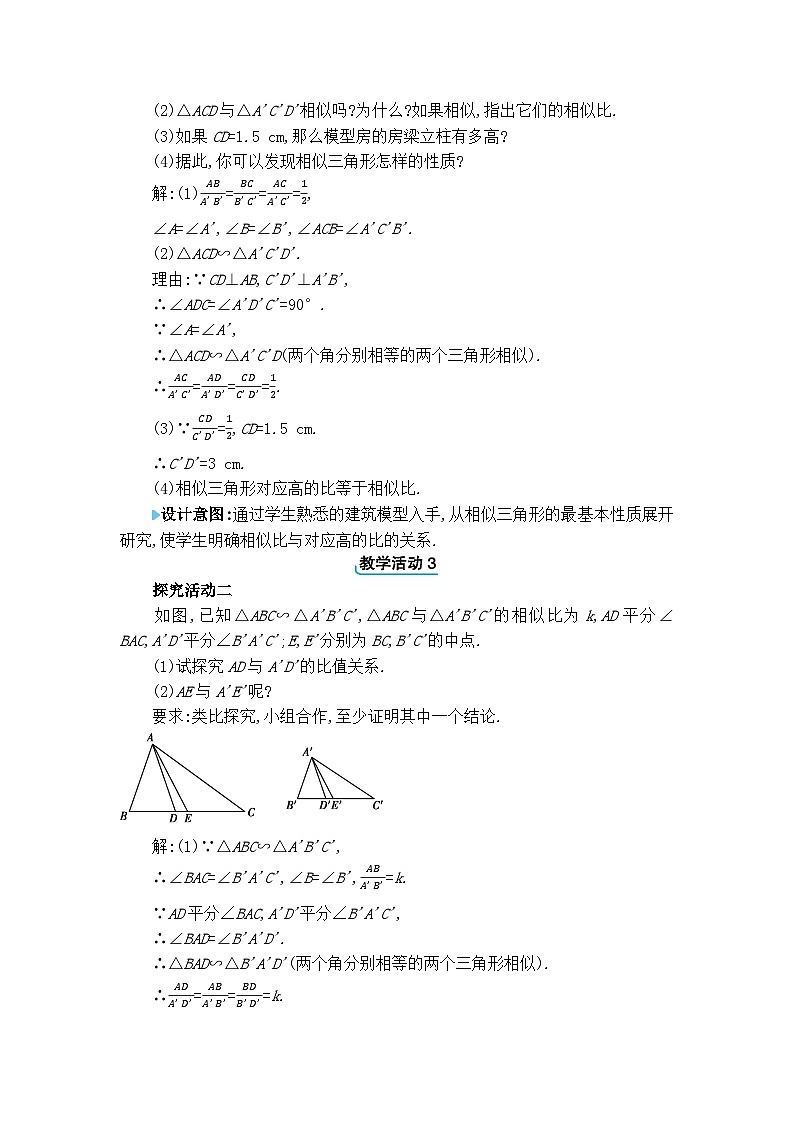 (2)△ACD与△A'C'D'相似吗?为什么?如果相似,指出它们的相似比.
(3)如果CD=1.5 cm,那么模型房的房梁立柱有多高?
(4)据此,你可以发现相似三角形怎样的性质?
解:(1)AB/A'B'=BC/B'C'=AC/A'C'=1/2,
∠A=∠A',∠B=∠B',∠ACB=∠A'C'B'.
(2)△ACD∽△A'C'D'.
理由:∵CD⊥AB,C'D'⊥A'B',
∴∠ADC=∠A'D'C'=90°.
∵∠A=∠A',
∴△ACD∽△A'C'D(两个角分别相等的两个三角形相似).
∴AC/A'C'=AD/A'D'=CD/C'D'=1/2.
(3)∵CD/C'D'=1/2,CD=1.5 cm.
∴C'D'=3 cm.
(4)相似三角形对应高的比等于相似比.
设计意图:通过学生熟悉的建筑模型入手,从相似三角形的最基本性质展开
研究,使学生明确相似比与对应高的比的关系.
教学活动3
探究活动二
如图,已知△ABC∽△A'B'C',△ABC与△A'B'C'的相似比为k,AD平分∠
BAC,A'D'平分∠B'A'C';E,E'分别为BC,B'C'的中点.
(1)试探究AD与A'D'的比值关系.
(2)AE与A'E'呢?
要求:类比探究,小组合作,至少证明其中一个结论.
A
A'
B D E C
B' D' E' C'
解:(1)∵△ABC∽△A'B'C',
∴∠BAC=∠B'A'C',∠B=∠B',AB/A'B'=k.
∵AD平分∠BAC,A'D'平分∠B'A'C',
∴∠BAD=∠B'A'D'.
∴△BAD∽△B'A'D'(两个角分别相等的两个三角形相似).
∴AD/A'D'=AB/A'B'=BD/B'D'=k.